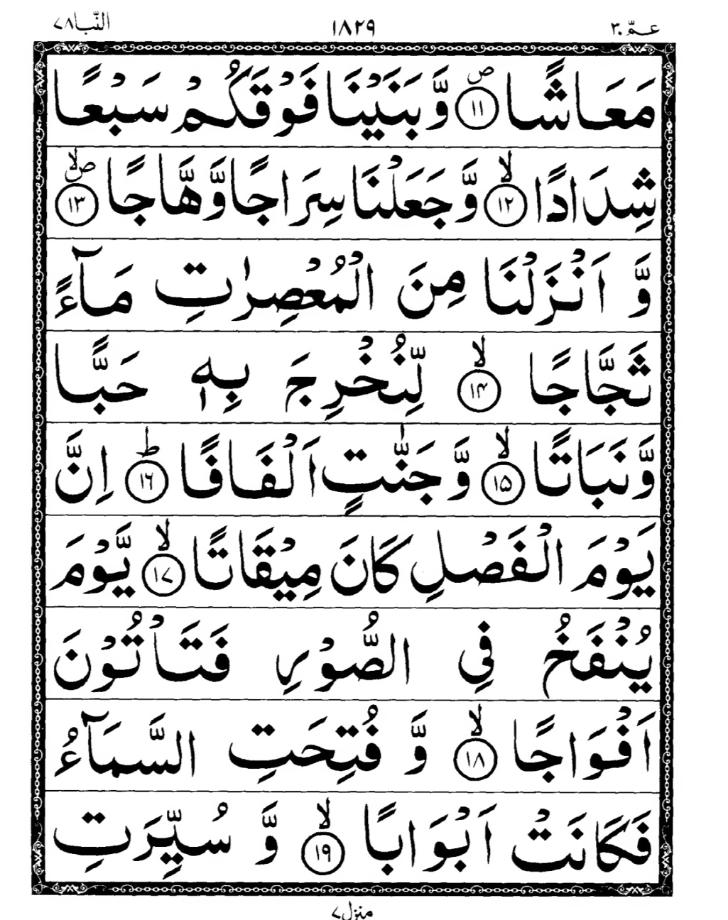 عـمّ ٣٠ ١٨٢٩ النّبا ٧٨
مَعَاشًا ۪ۙ﴿۱۱﴾ وَّ بَنَيْنَا فَوْقَكُمْ سَبْعًا
شِدَادًا ﴿ۙ۱۲﴾ وَّ جَعَلْنَا سِرَاجًا وَّهَّاجًا ﴿۪ۙ۱۳﴾
وَّ اَنْزَلْنَا مِنَ الْمُعْصِرٰتِ مَآءً
ثَجَّاجًا ﴿ۙ۱۴﴾ لِّنُخْرِجَ بِهٖ حَبًّا
وَّنَبَاتًا ﴿ۙ۱۵﴾ وَّ جَنّٰتٍ اَلْفَافًا ﴿ؕ۱۶﴾ اِنَّ
يَوْمَ الْفَصْلِ كَانَ مِيْقَاتًا ﴿ۙ۱۷﴾ يَّوْمَ
يُنْفَخُ فِي الصُّوْرِ فَتَاْتُوْنَ
اَفْوَاجًا ﴿ۙ۱۸﴾ وَّ فُتِحَتِ السَّمَآءُ
فَكَانَتْ اَبْوَابًا ﴿ۙ۱۹﴾ وَّ سُيِّرَتِ
منزل ٧